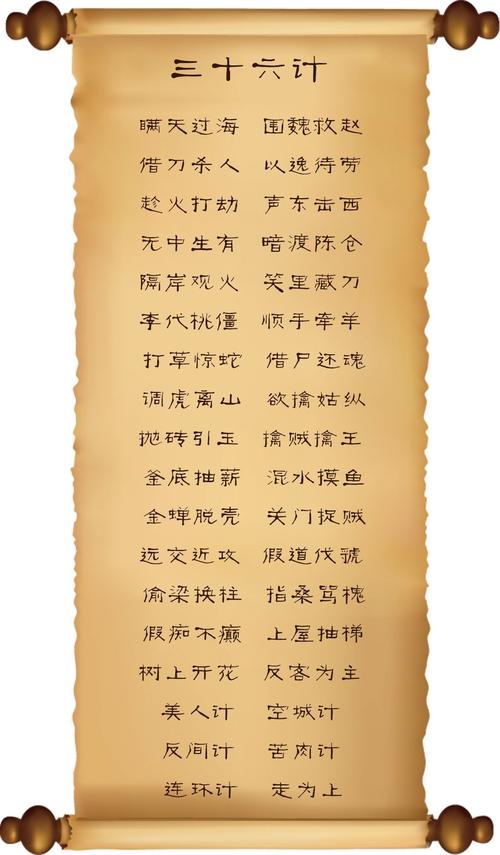 三十六计
瞒天过海 围魏救赵
借刀杀人 以逸待劳
趁火打劫 声东击西
无中生有 暗渡陈仓
隔岸观火 笑里藏刀
李代桃僵 顺手牵羊
打草惊蛇 借尸还魂
调虎离山 欲擒姑纵
抛砖引玉 擒贼擒王
釜底抽薪 混水摸鱼
金蝉脱壳 关门捉贼
远交近攻 假道伐虢
偷梁换柱 指桑骂槐
假痴不癫 上屋抽梯
树上开花 反客为主
美人计 空城计
反间计 苦肉计
连环计 走为上